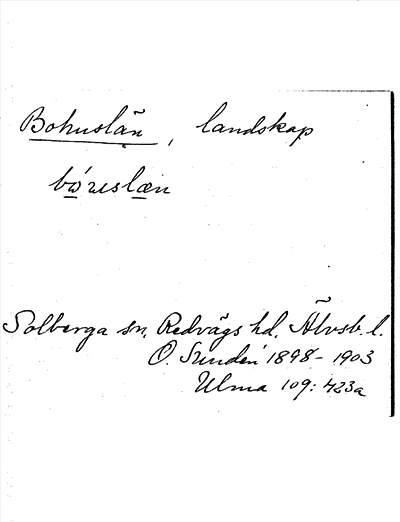 Bohuslän, landskap
bώ̲ʀeslæ̲n
Solberga sn, Redvägs hd, Älvsb. l.
O. Sundén 1898-1903
Ulma 109: 423a